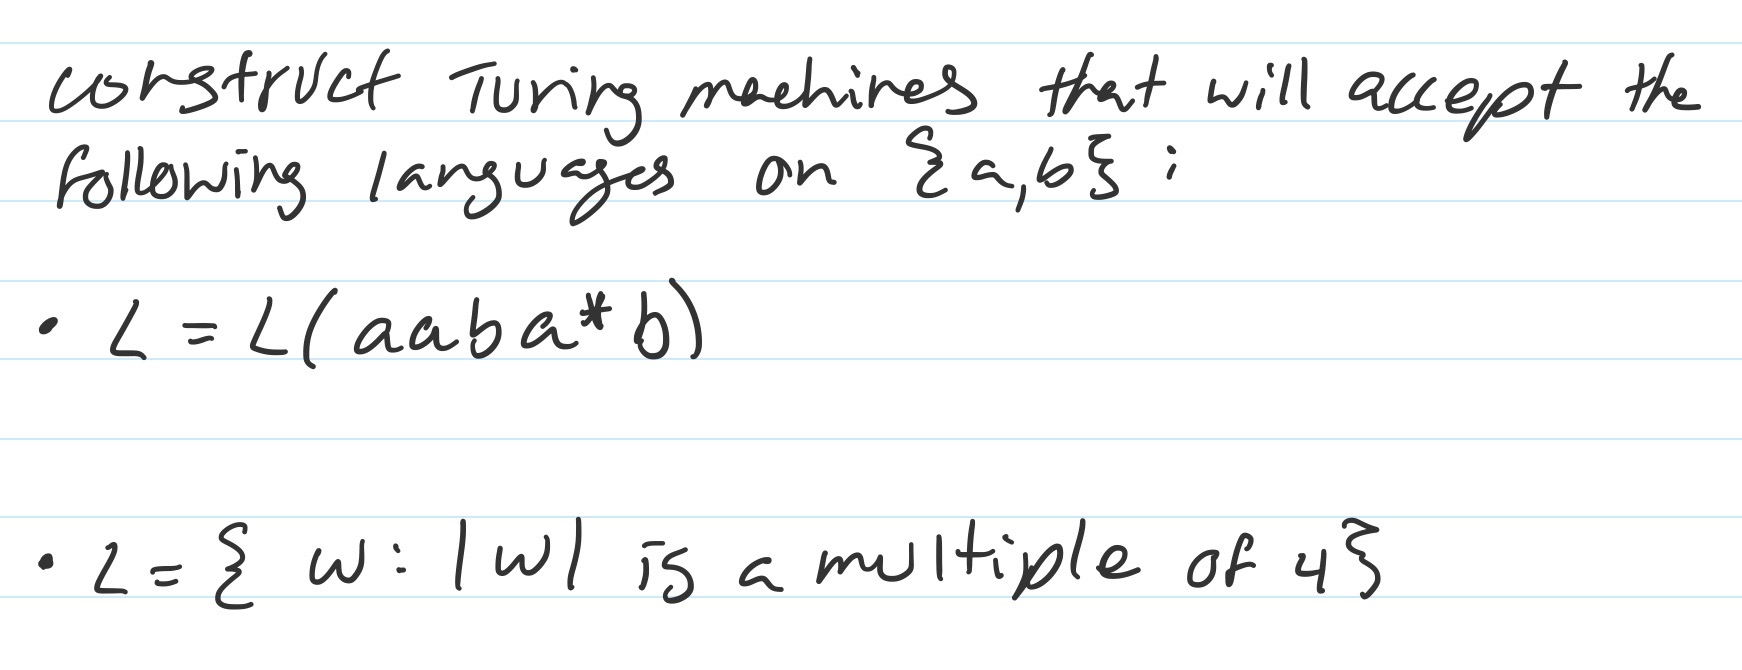 construct Turing machines that will accept the
following languages on {a,b} :
• L = L(aaba*b)
• L = { w : |w| is a multiple of 4}